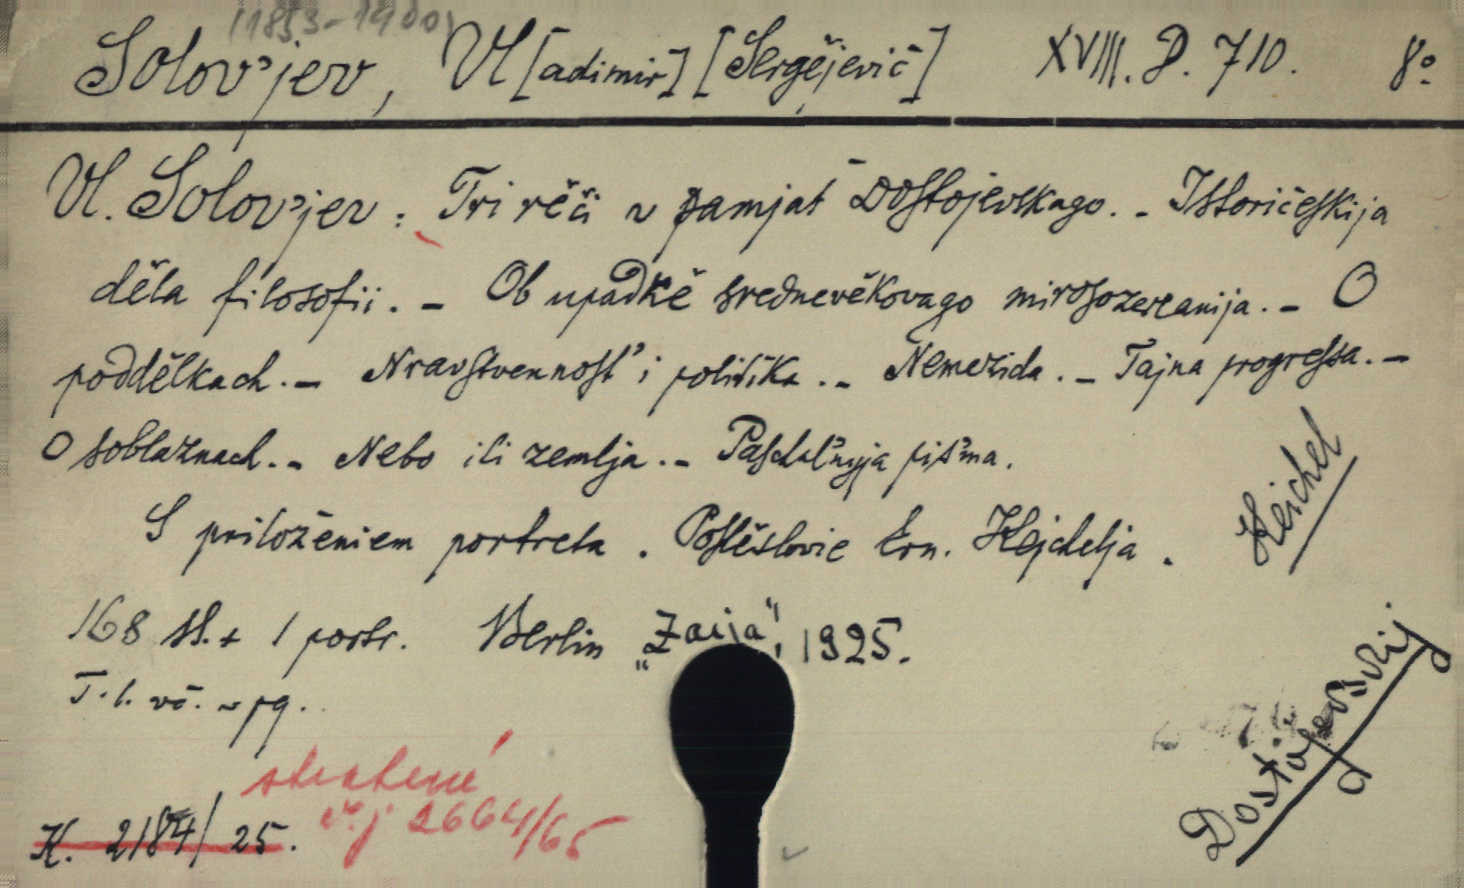 (1853-1900)
Solov'jev, Vl[adimir] [Sergějevič] XVIII. D. 710. 8°
Vl. Solov'jev: Tri rěči v pamjat' Dostojevskago. - Istoričeskija
děla filosofii. - Ob upadkě srednevěkovago mirosozercanija. - O
poddělkach. - Nravstvennost' i politika. - Nemezida. - Tajna progressa. -
O soblaznach. - Nebo ili zemlja. - Paschal'nyja pis'ma.
S priloženiem portreta. Poslěslovie Ern. Kejchelja.
Kejchel
168 st. + 1 portr. Berlin „Zarja", 1925.
T. l. vč. v pg.
Dostojevskij
ztracené
č.j 2664/65
K. 2184/25.